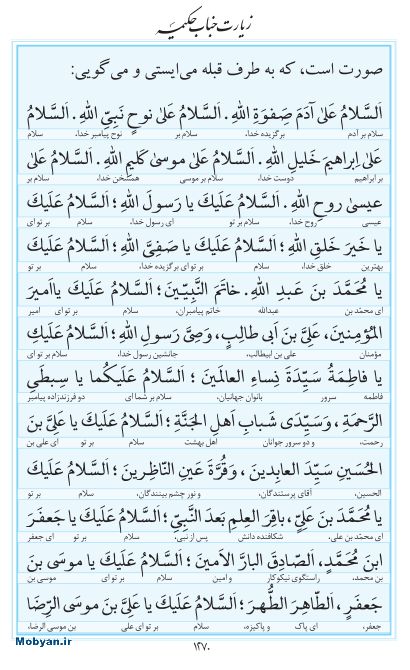 زیارت جناب حکیمه
صورت است، که به طرف قبله می‌ایستی و می‌گویی:
اَلسَّلامُ عَلىٰ آدَمَ صِفوَةِ اللهِ. اَلسَّلامُ عَلىٰ نوحٍ نَبِیِّ اللهِ. اَلسَّلامُ
سلام بر آدم برگزیده خدا، سلام بر نوح پیامبر خدا، سلام
عَلىٰ اِبراهیمَ خَلیلِ اللهِ. اَلسَّلامُ عَلىٰ موسىٰ کَلیمِ اللهِ. اَلسَّلامُ عَلىٰ
بر ابراهیم دوست خدا، سلام بر موسی همسخن خدا، سلام بر
عیسىٰ روحِ اللهِ. اَلسَّلامُ عَلَیکَ یا رَسولَ اللهِ؛ اَلسَّلامُ عَلَیکَ
عیسی روح خدا، سلام بر تو ای رسول خدا، سلام بر تو ای
یا خَیرَ خَلقِ اللهِ؛ اَلسَّلامُ عَلَیکَ یا صَفِیَّ اللهِ؛ اَلسَّلامُ عَلَیکَ
بهترین خلق خدا، سلام بر تو ای برگزیده خدا، سلام بر تو
یا مُحَمَّدَ بنَ عَبدِ اللهِ. خاتَمَ النَّبِیّینَ؛ اَلسَّلامُ عَلَیکَ یااَمیرَ
ای محمّد بن عبدالله خاتم پیامبران، سلام بر تو ای امیر
المُؤمِنینَ، عَلِیَّ بنَ اَبی طالِبٍ، وَصِیَّ رَسولِ اللهِ؛ اَلسَّلامُ عَلَیکِ
مؤمنان علی بن ابیطالب، جانشین رسول خدا، سلام بر تو ای
یا فاطِمَةُ سَیِّدَةَ نِساءِ العالَمینَ؛ اَلسَّلامُ عَلَیکُما یا سِبطَیِ
فاطمه سرور بانوان جهانیان، سلام بر شما ای دو فرزندزاده پیامبر
الرَّحمَةِ، وَسَیِّدَی شَبابِ اَهلِ الجَنَّةِ؛ اَلسَّلامُ عَلَیکَ یا عَلِیَّ بنَ
رحمت، و دو سرور جوانان اهل بهشت سلام بر تو ای علی بن
الحُسَینِ سَیِّدَ العابِدینَ، وَقُرَّةَ عَینِ النّاظِرینَ؛ اَلسَّلامُ عَلَیکَ
الحسین، آقای پرستندگان، و نور چشم بینندگان، سلام بر تو
یا مُحَمَّدَ بنَ عَلِیٍّ، باقِرَ العِلمِ بَعدَ النَّبِیِّ؛ اَلسَّلامُ عَلَیکَ یا جَعفَرَ
ای محمّد بن علی، شکافنده دانش پس از نبی، سلام بر تو ای جعفر
ابنَ مُحَمَّدٍ، اَلصّادِقَ البارَّ الاَمینَ؛ اَلسَّلامُ عَلَیکَ یا موسَی بنَ
بن محمد، راستگوی نیکوکار و امین سلام بر تو ای موسی بن
جَعفَرٍ، اَلطّاهِرَ الطُّهرَ؛ اَلسَّلامُ عَلَیکَ یا عَلِیَّ بنَ موسَی الرِّضَا
جعفر، ای پاک و پاکیزه، سلام بر تو ای علی بن موسی الرضا،
۱۲۷۰
Mobyan.ir